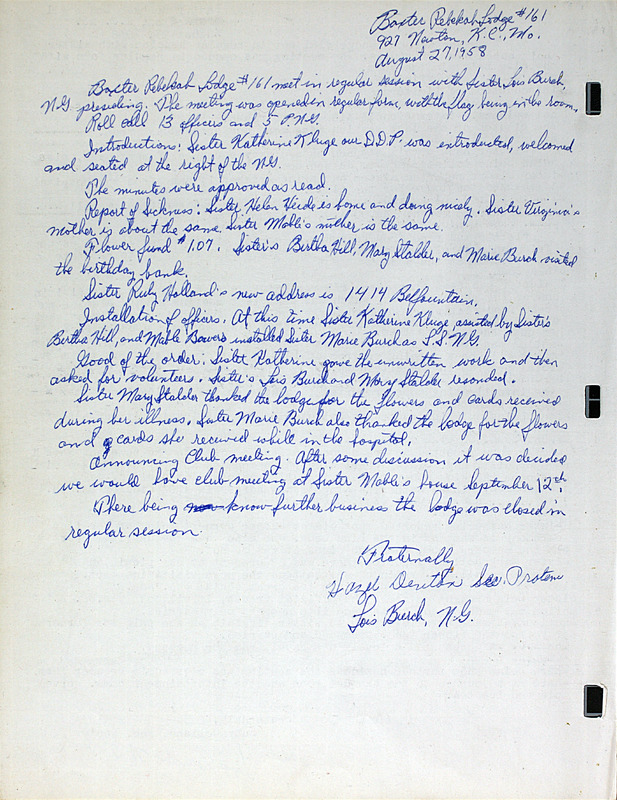 Baxter Rebekah Lodge #161
927 Newton, K.C., Mo.
August 27, 1958
Baxter Rebekah Lodge #161 met in regular session with Sister Lois Burch,
N.G. presiding. The meeting was opened in regular form, with the flag being in the room.
Roll call 13 officers and 5 P.N.G.
Introductions: Sister Katherine Kluge our D.D.P. was introduced, welcomed
and seated at the right of the N.G.
The minutes were approved as read.
Report of Sickness: Sister Helen Heide is home and doing nicely. Sister Virginia's
mother is about the same. Sister Mable's mother is the same.
Flower fund $1.07. Sister's Bertha Hill, Mary Stalder, and Marie Burch visited
the birthday bank.
Sister Ruby Holland's new address is 1414 Bellfountain.
Installation of officers. At this time Sister Katherine Kluge, assisted by Sister's
Bertha Hill, and Mable Bowers installed Sister Marie Burch as L.S.N.G.
Good of the order: Sister Katherine gave the unwritten work and then
asked for volunteers. Sister's Lois Burch and Mary Stalder resonded.
Sister Mary Stalder thanked the lodge for the flowers and cards received
during her illness. Sister Marie Burch also thanked the lodge for the flowers
and cards she received while in the hospital.
Announcing Club meeting. After some discussion it was decided
we would have club meeting at Sister Mable's house September 12th.
There being know further business the lodge was closed in
regular session.
Fraternally
Hazel Denton Sec. Protem
Lois Burch, N.G.